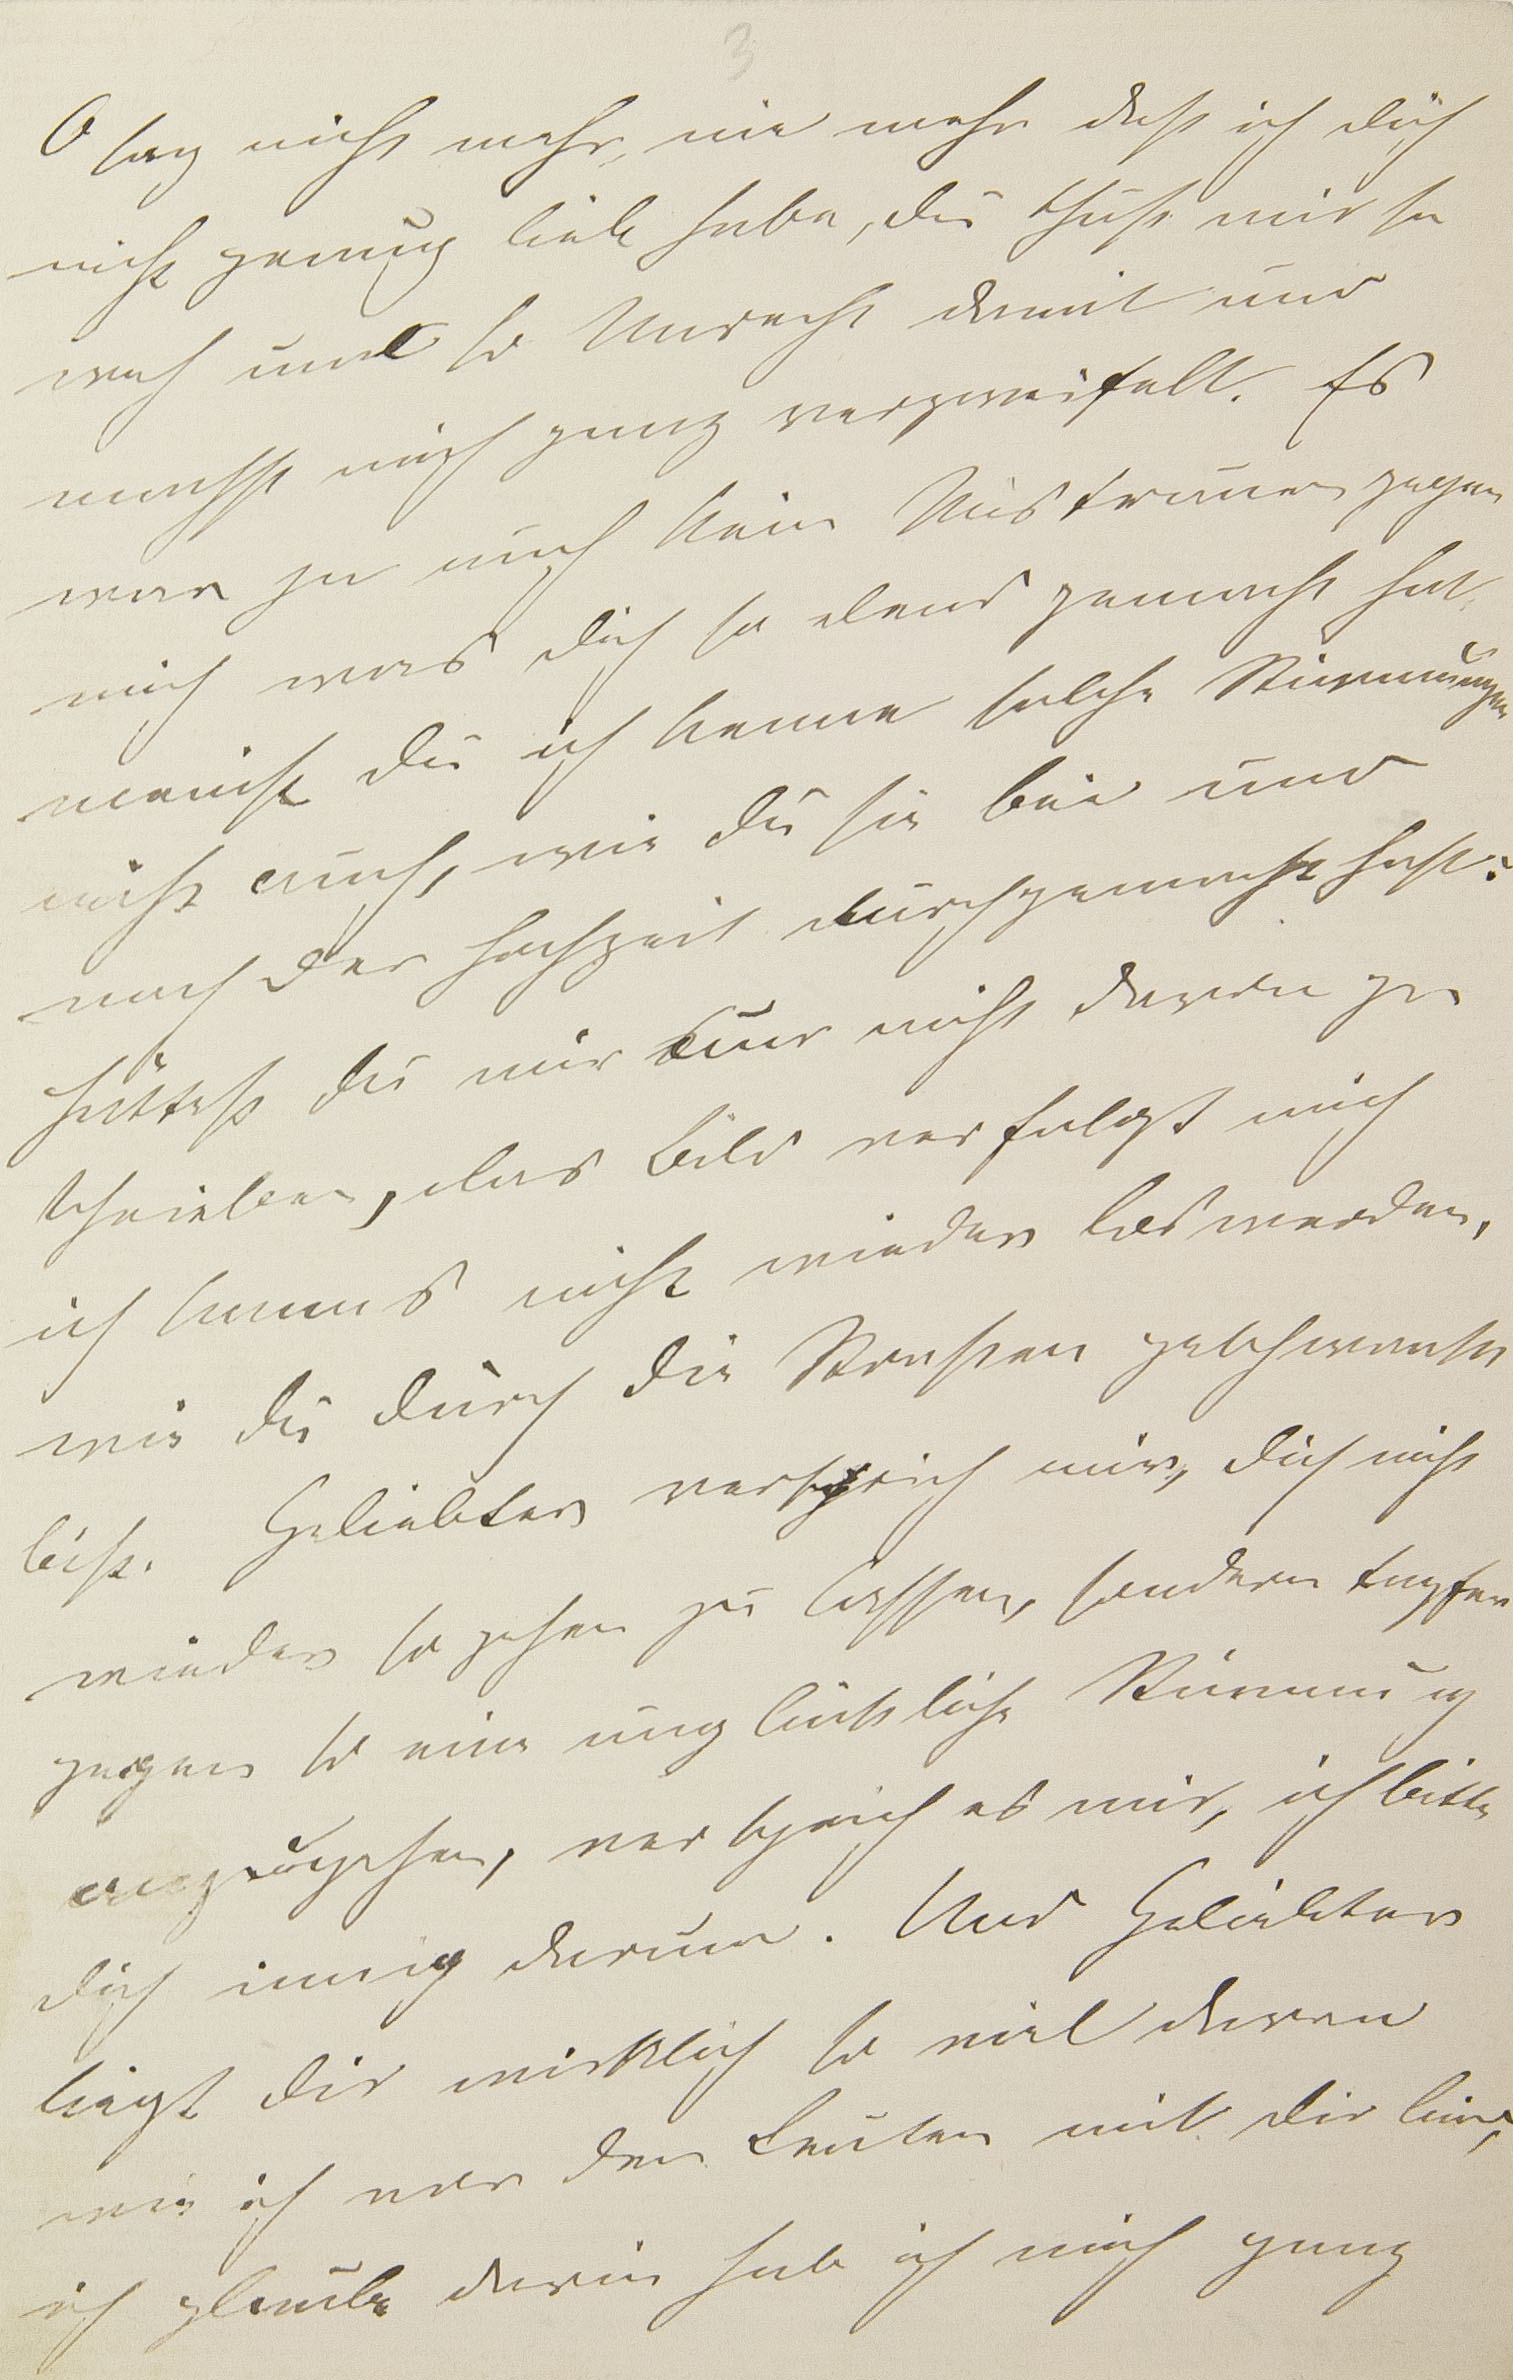 3
O sag nicht mehr, nie mehr daß ich dich
nicht genug lieb habe, du thust mir so
weh und so Unrecht damit und
machst mich ganz verzweifelt. Es
war ja auch kein Mistrauen gegen
mich was dich so elend gemacht hat,
meinst du ich kenne solche Stimmungen
nicht auch, wie du sie bei und
nach der Hochzeit durchgemacht hast:
hättest du mir nur nicht davon ge
schrieben, das Bild verfolgt mich
ich kanns nicht wieder los werden,
wie du durch die Straßen geschwankt
bist. Geliebter versprich mir, dich nicht
wieder so gehen zu lassen, sondern tapfer
gegen so eine unglückliche Stimmung
anzugehen, versprich es mir, ich bitte
dich innig darum. Und Geliebter
liegt dir wirklich so viel daran
wie ich vor den Leuten mit dir bin,
ich glaube darin hab ich mich ganz